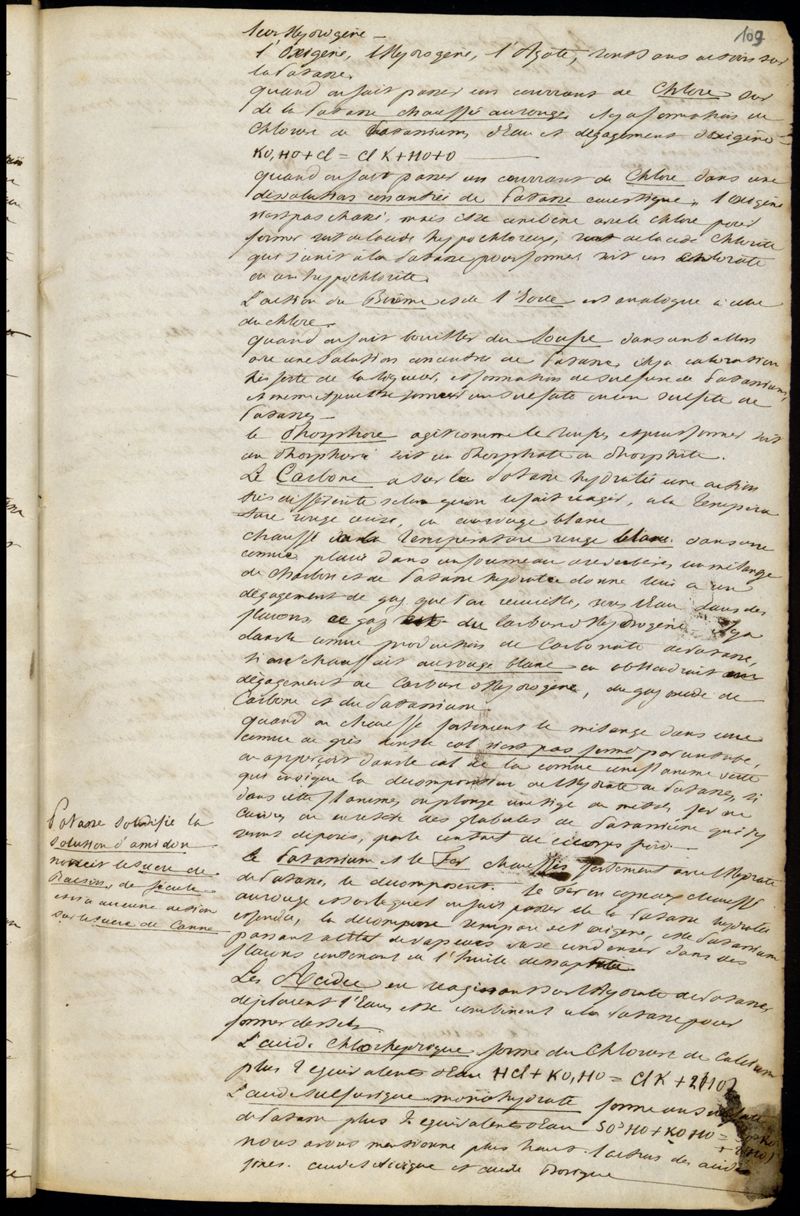 109
Sur Hydrogène —
l'Oxigène, l'Hydrogène, l'Azote, sont sans action sur
la Potasse.
quand on fait passer un courrant de Chlore sur
de la Potasse chauffée au rouge il y a formation de
Chlorure de Potassium, d'Eau et dégagement d'oxigène
KO,HO + Cl = Cl K + HO + O
quand on fait passer un courrant de Chlore dans une
dissolution concentrée de Potasse caustique, l'oxigène
n'est pas chassé, mais il se combine avec le chlore pour
former soit de l'acide hypochloreux, soit de l'acide Chlorite
qui s'unit à la Potasse pour former soit un chlorate
ou un hypochlorite.
L'action du Brôme et de l'Iode est analogue à celle
du chlore.
quand on fait bouillir du Soufre dans un ballon
avec une solution concentrée de Potasse, il y a coloration
très forte de la liqueur, et formation de sulfure de Potassium,
et même il peut se former un sulfate ou un sulfite de
Potasse —
le Phosphore agit comme le soufre, et peut former soit
un Phosphure soit un Phosphate ou Phosphite.
Le Carbone a sur la Potasse hydratée une action
très différente selon qu'on le fait réagir, à la tempéra
ture rouge, ou au rouge blanc
chauffé à la température rouge dans une
cornue placée dans un fourneau à reverbère, un mélange
de charbon et de Potasse hydratée donne lieu à un
dégagement de gaz que l'on recueille, sous l'Eau dans des
flacons, ce gaz est du Carbone d'Hydrogène. Il y a
dans la cornue production de Carbonate de Potasse,
si on chauffait au rouge blanc on obtiendrait un
dégagement de Carbone d'Hydrogène, du gaz oxide de
Carbone et du Potassium.
quand on chauffe fortement le mélange dans une
cornue de grès dont le col n'est pas fermé par un tube,
on apperçoit dans le col de la cornue une flamme verte
qui indique la décomposition de l'Hydrate de Potasse, si
dans cette flamme, on plonge une tige de métal, fer ou
cuivre, on en retire des globules de Potassium qui s'y
sont déposés, par le contact de ce corps froid.
Le Potassium et le Fer chauffés fortement avec l'Hydrate
de Potasse, le décomposent. le Fer en copeaux chauffé
au rouge et sur lequel on fait passer de la Potasse hydratée
la décompose s'empare de l'oxigène, et le Potassium
passant à l'état de vapeurs va se condenser dans des
flacons contenant de l'huile de naphte
Les Acides en réagissant sur l'Hydrate de Potasse,
déplacent l'Eau, et se combinent à la Potasse pour
former des sels
L'acide Chlorhydrique forme du Chlorure de
plus 2 équivalents d'Eau HCl + KO,HO = Cl K + 2HO
L'acide sulfurique monohydraté forme un sulfate
de Potasse plus 2 équivalents d'Eau SO³HO + KO HO = SO³KO
+ 2(HO)
nous avons mentionné plus haut l'action des acides
acide et acide Borique
Potasse solidifie la
solution d'amidon
noircit le sucre de
Raisin, de fécule
et n'a aucune action
sur le sucre de Canne